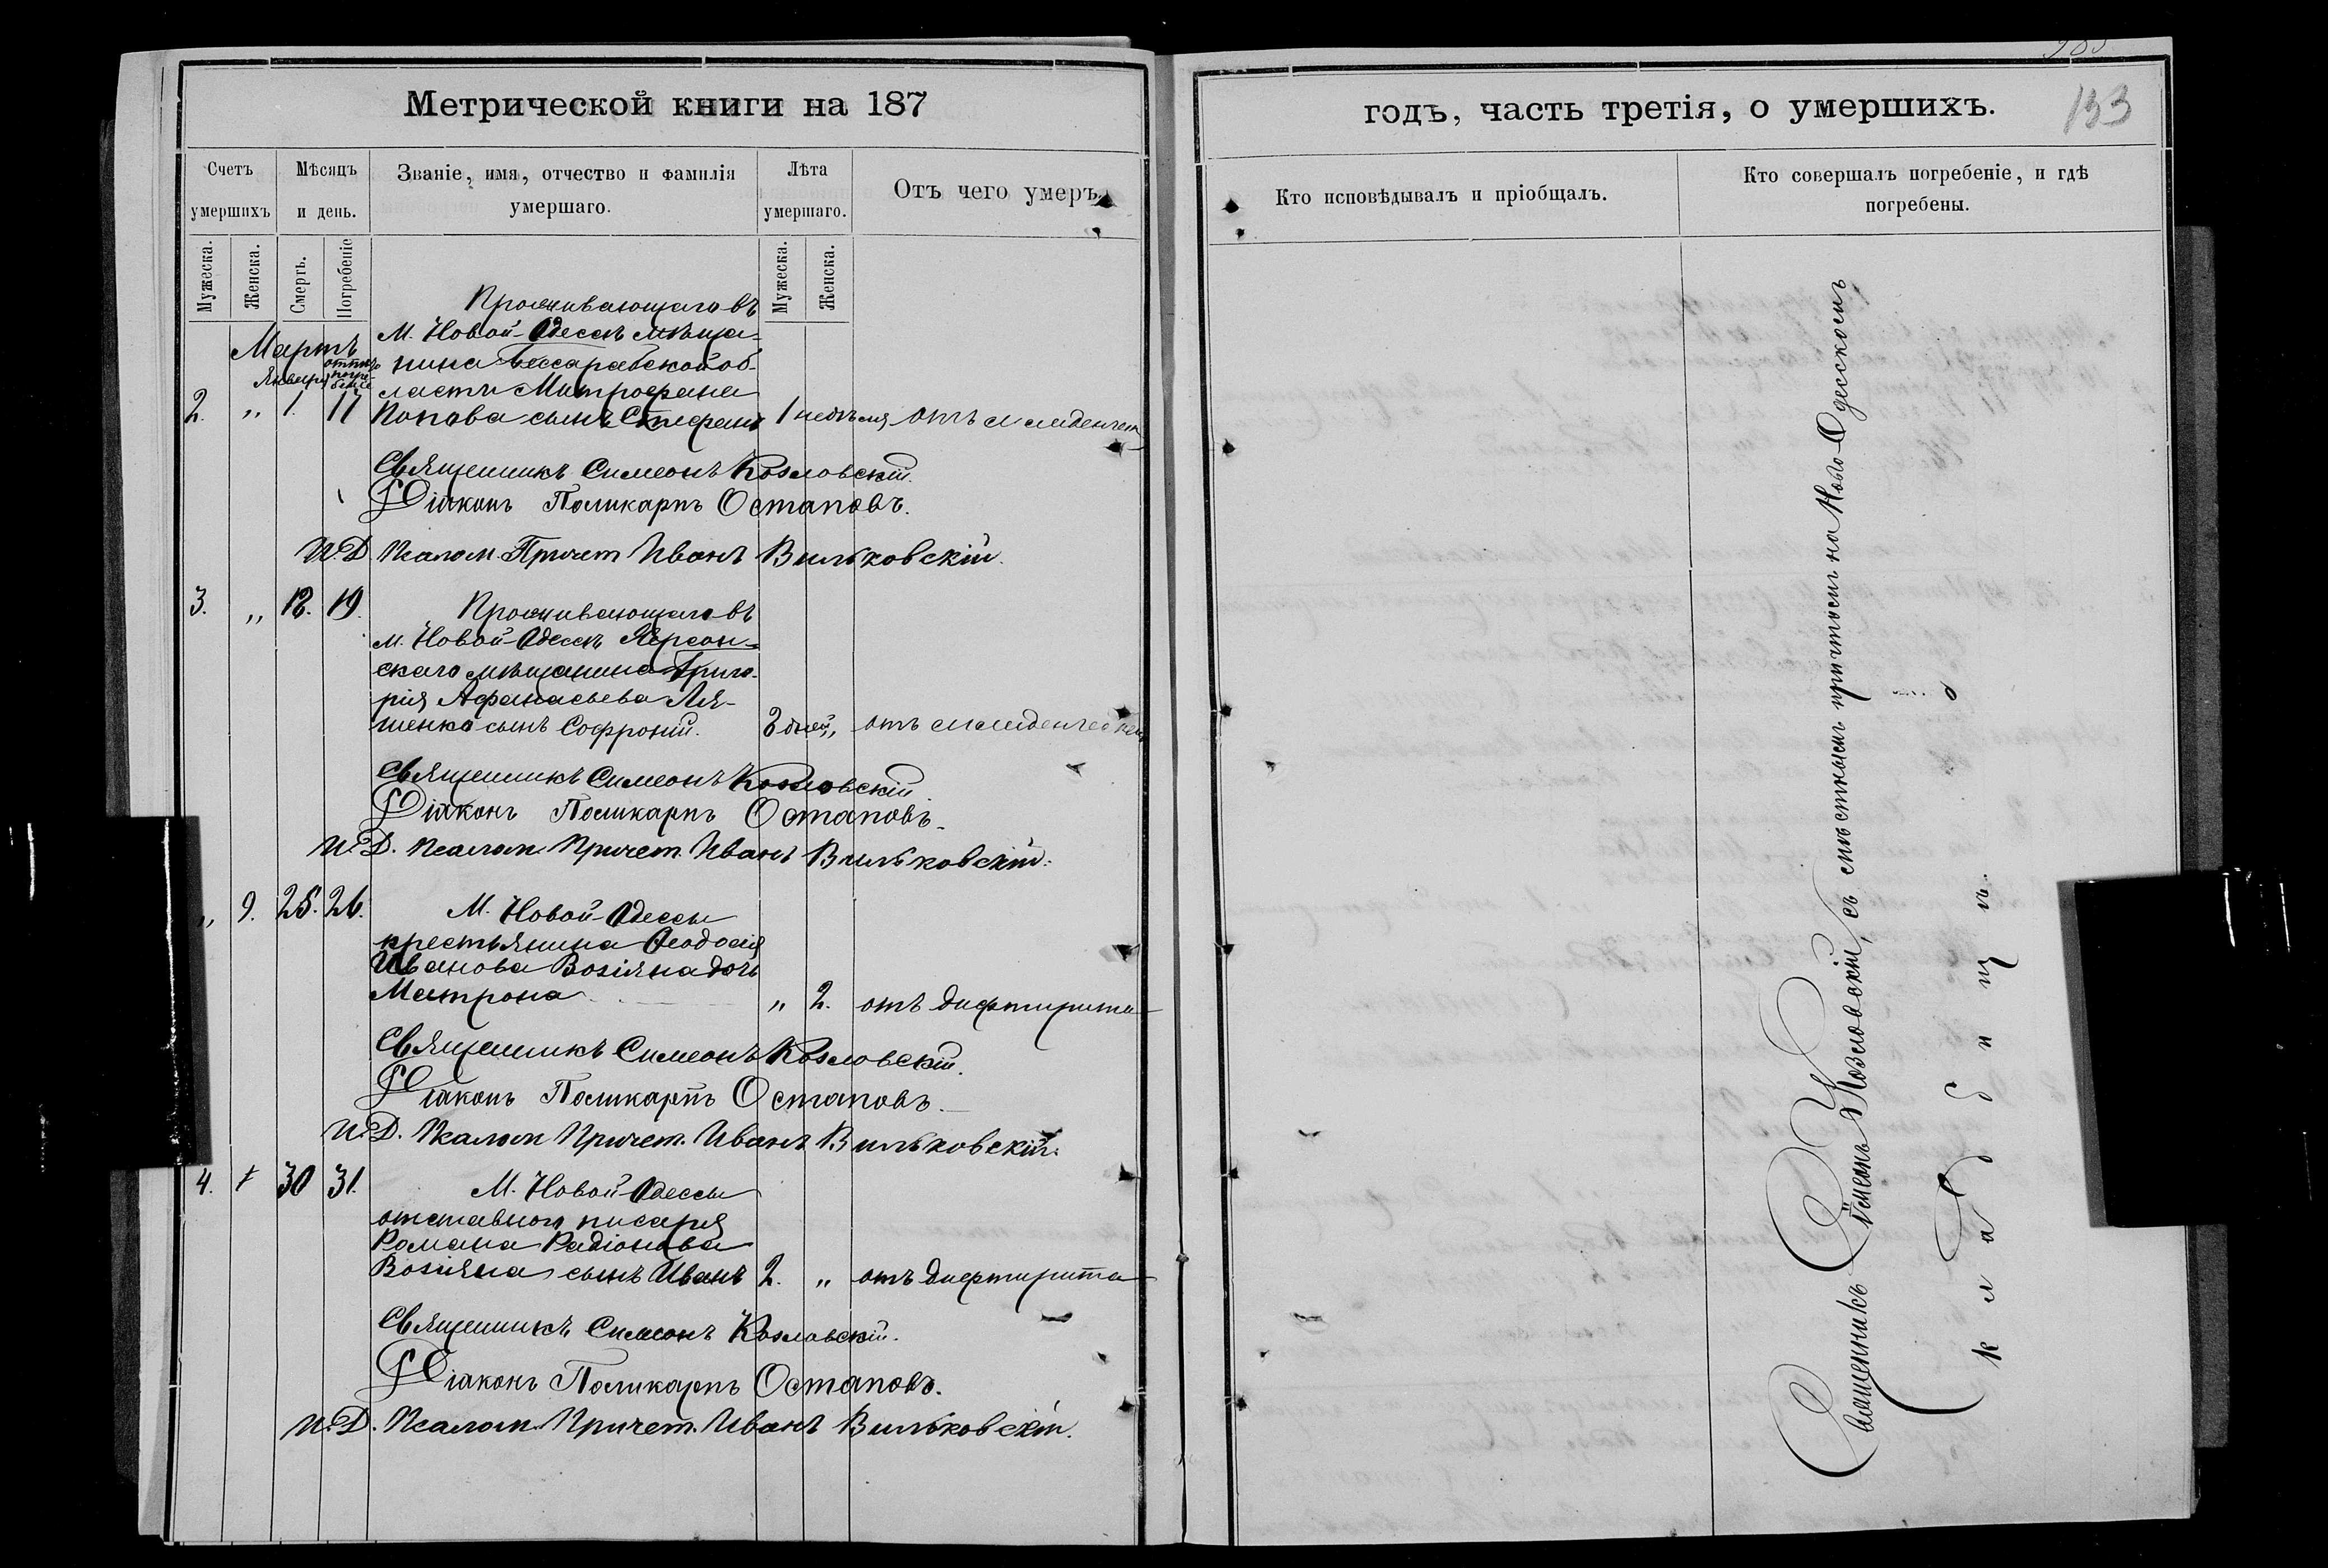 Метрической книги на 187
Счетъ умершихъ
Мѣсяцъ и день.
Званіе, имя, отчество и фамилія умершаго.
Лѣта умершаго.
Отъ чего умеръ.
Мужеска.
Женска.
Смерть.
Погребеніе
Мужеска.
Женска.
Проживающаго въ
М. Новой-Одессѣ мѣща-
Мартъ
нина Бессарабской об-
Января
ласти Митрофана
2. „ 1. 11 Попова сынъ Стефанъ 1 недѣля отъ младенческ
Священникъ Симеонъ Козловскій.
Діаконъ Поликарпъ Остаповъ.
И. Д. Псалом. Причет Иванъ Вильковскій.
3. „ 18. 19. Проживающаго въ
м. Новой-Одессѣ Херсон-
скаго мѣщанина Григо-
рія Афанасьева Ля-
шенка сынъ Софроній. 8 дней „ отъ младенческ
Священникъ Симеонъ Козловскій
Діаконъ Поликарпъ Остаповъ.
И. Д. Псалом. Причет. Иванъ Вильковскій.
„ 9. 25. 26. М. Новой-Одессы
крестьянина Ѳеодосія
Иванова Возіяна дочь
Матрона „ 2. отъ дифтирита
Священникъ Симеонъ Козловскій.
Діаконъ Поликарпъ Остаповъ.
И. Д. Псалом Причет. Иванъ Вильковскій.
4. 30 31. М. Новой-Одессы
отставного писаря
Романа Радіонова
Возіяна сынъ Иванъ 2. „ отъ дифтирита
Священникъ Симеонъ Козловскій.
Діаконъ Поликарпъ Остаповъ.
И. Д. Псалом. Причет. Иванъ Вильковскій.
годъ, часть третія, о умершихъ.
133
Кто исповѣдывалъ и пріобщалъ.
Кто совершалъ погребеніе, и гдѣ погребены.
Священникъ Симеонъ Козловскій, съ мѣстнымъ причтомъ на Ново-Одесскомъ
кладбищѣ.